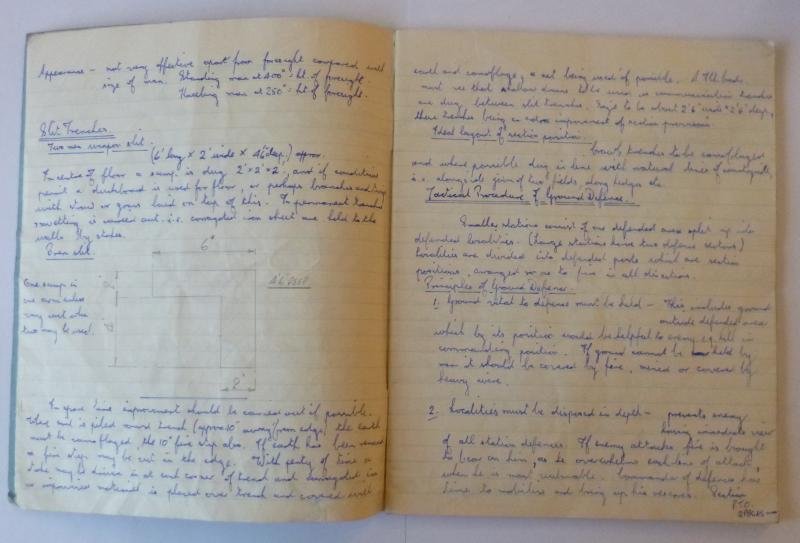 Appearance – not very effective apart from foresight compared with
size of man. Standing man at 400ˣ = ht. of foresight.
Kneeling man at 250ˣ = ht of foresight.
Slit Trenches.
Two man weapon slit.
(6' long x 2' wide x 4'6 deep) approx.
In centre of floor a sump is dug 2' x 2' x 2', and if conditions
permit a duckboard is used for floor, or perhaps branches and
with straw or grass laid on top of this. In permanent trenches
revetting is carried out. i.e. corrugated iron sheet are held to the
walls by stakes.
6"
4'6" DEEP
One sump in
one corner unless
very wet when
two may be used.
2'
In spare time improvement should be carried out if possible.
When soil is piled round trench (approx 10" away from edge) the earth
must be camouflaged, the 10" fire step also. If earth has been removed
a fire step may be cut in the edge. With plenty of time a
stake may be driven in at each corner of trench and corrugated iron
or improvised material is placed over trench and covered with
earth and camouflage, a net being used if possible.
must see that shallow drains to be used as communication trenches
are dug between slit trenches. to be about 2'6" wide x 2'6" deep,
these trenches being an extra improvement of section
Ideal layout of section position.
trenches to be camouflaged
and where possible dug in line with natural lines of countryside,
i.e. alongside join of two fields, along hedges etc.
Tactical Procedure of Ground Defence.
Smaller stations consist of one defended area split up into
defended localities. (Large stations have two defence sectors)
Localities are divided into defended posts which are section
positions, arranged so as to fire in all directions.
Principles of Ground Defence.
1. Ground vital to defence must be held – This includes ground
outside defended area
which by its position would be helpful to enemy e.g. hill in
commanding position. If ground cannot be held by
men it should be covered by fire, mined or covered by
heavy wire.
2. Localities must be disposed in depth – prevents enemy
having immediate view
of all station defences. If enemy attacks fire is brought
to bear on him, as he overwhelms each line of attack,
when he is most vulnerable. Commander of defence has
time to mobilise and bring up his reserves. Section
P.T.O.
2 PAGES